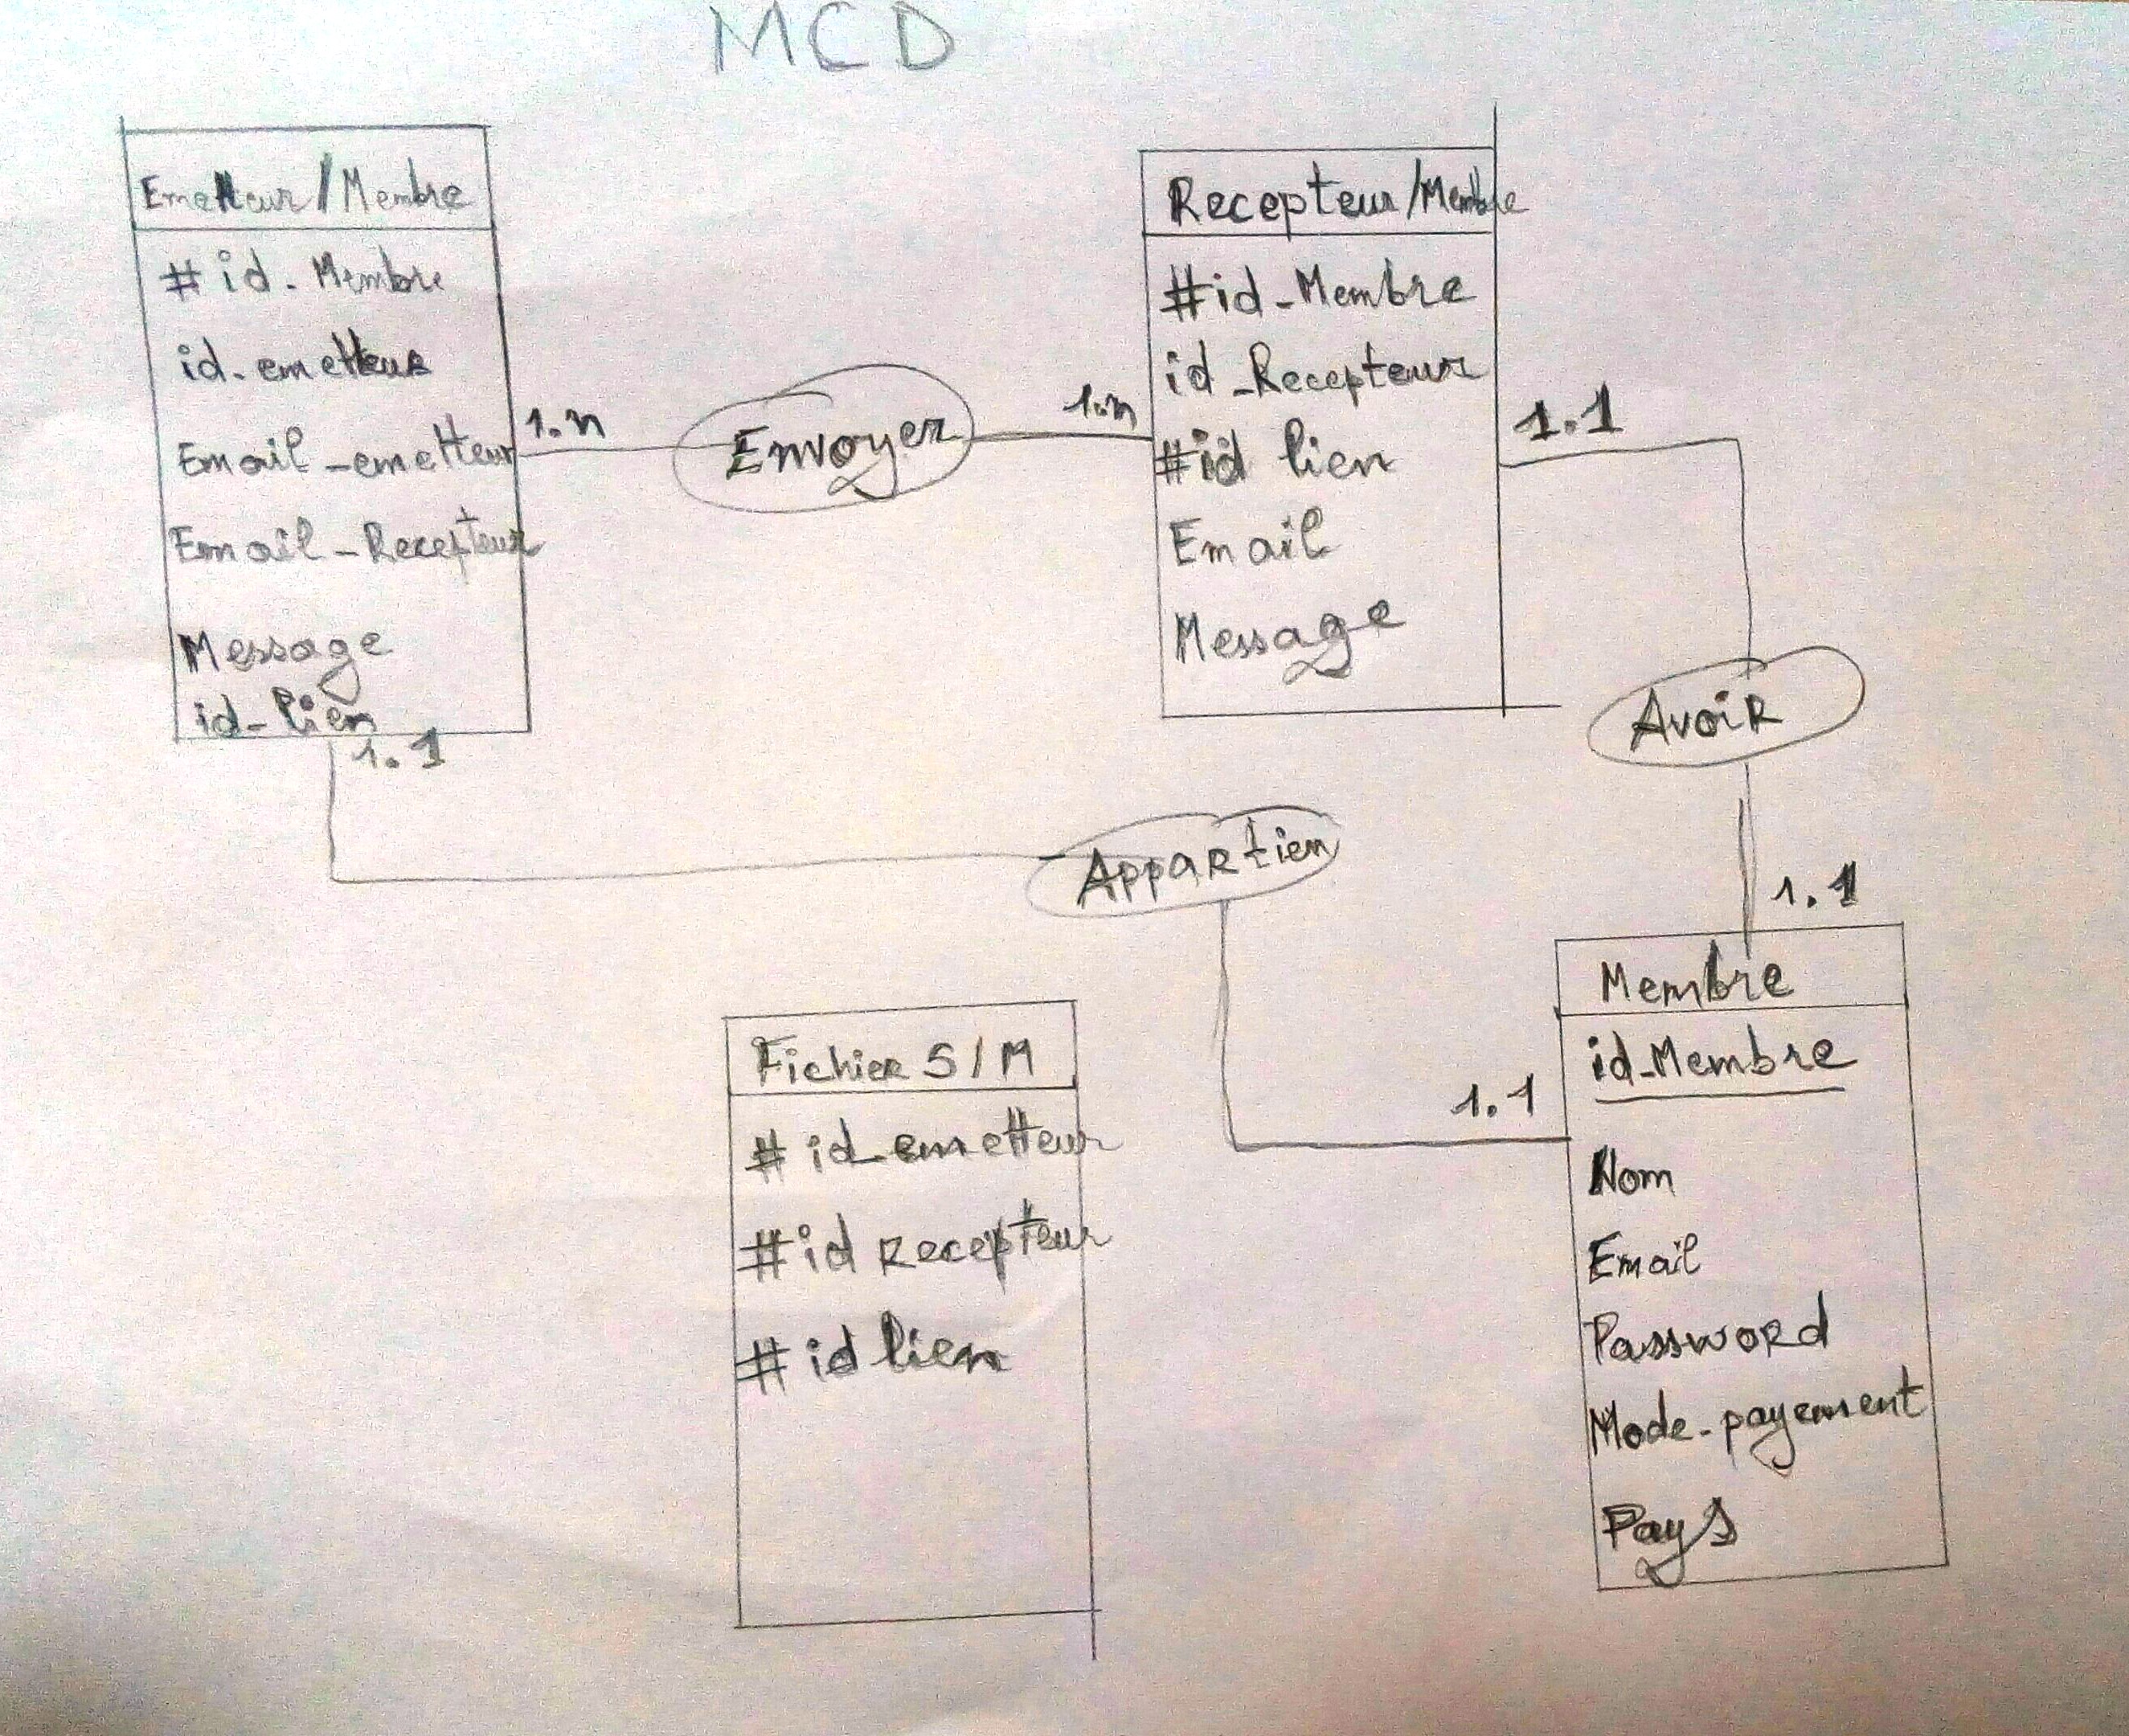 MCD
Emetteur/Membre
# id. Membre
id. emetteur
Email_emetteur
Email_Recepteur
Message
id_lien
1.n
Envoyer
1.n
Recepteur/Membre
#id_Membre
id_Recepteur
#id lien
Email
Message
1.1
Avoir
1.1
1.1
Appartien
1.1
Fichier S/M
# id_emetteur
#id recepteur
# id lien
Membre
id_Membre
Nom
Email
Password
Mode_payement
Pays